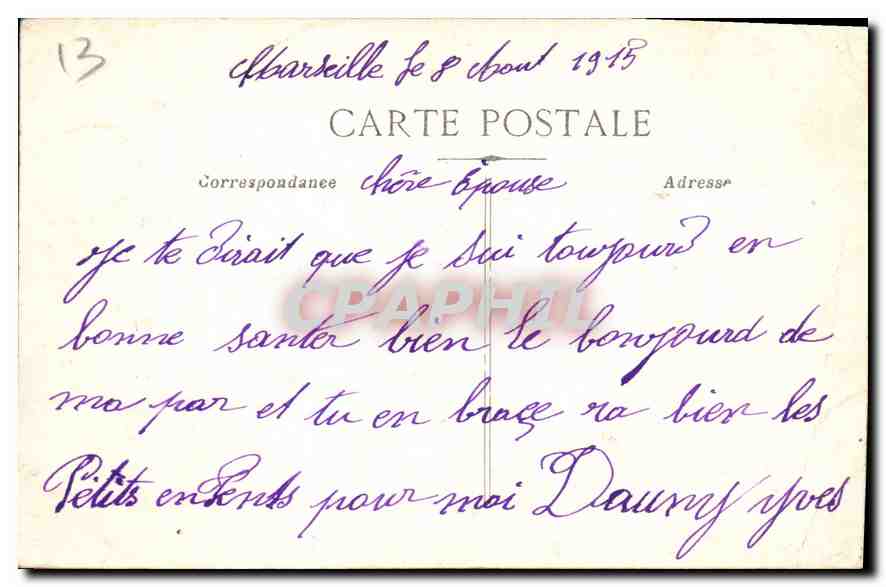 13
Marseille le 8 Aout 1915
CARTE POSTALE
Correspondance chère Epouse Adresse
Je te dirait que je sui toujourd en
CPAPHIL
bonne santer bien le bonjourd de
ma par et tu en braçe ra bien les
Pétits enfents pour moi Dauny yves